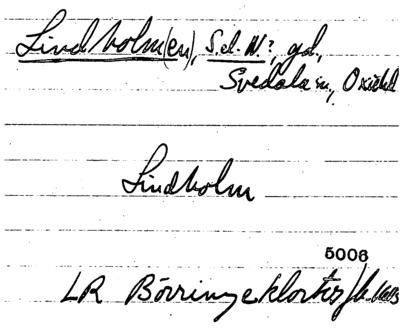 Lindholm(en), S. el. N?, gd,
Svedala sn, Oxie hd
Lindholm
5006
LR Börringekloster